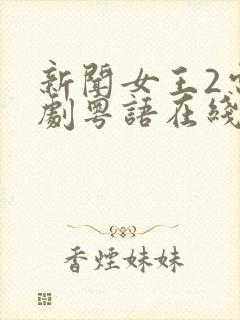 新聞女王2
劇粵語在綫
香煙妹妹